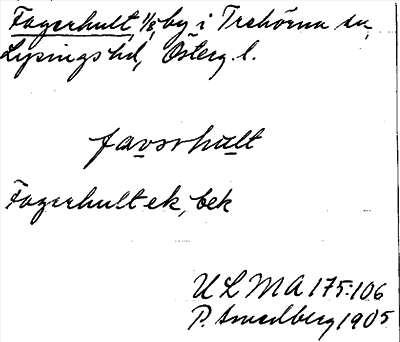 Fagerhult, 1/8, by i Trehörna sn,
Lysings hd, Österg. l.
favsrhult
Fagerhult ek, bek
ULMA 175:106
P. Smedberg 1905